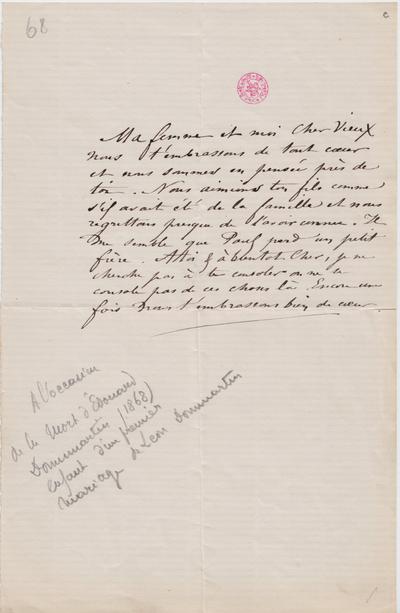 68
Ma femme et moi Cher Vieux
nous t'embrassons de tout cœur
et nous sommes en pensée près de
toi. Nous aimions ton fils comme
s'il avait été de la famille et nous
regrettons presque de l'avoir connu. Il
me semble que Paul perd un petit
frère. à bientot Cher, je ne
cherche pas à te consoler on ne se
console pas de ces choses là. Encore une
fois nous t'embrassons bien de cœur
A l'occasion
de la mort d'Edouard
Dommartin (1868)
enfant d'un premier
mariage de Léon Dommartin